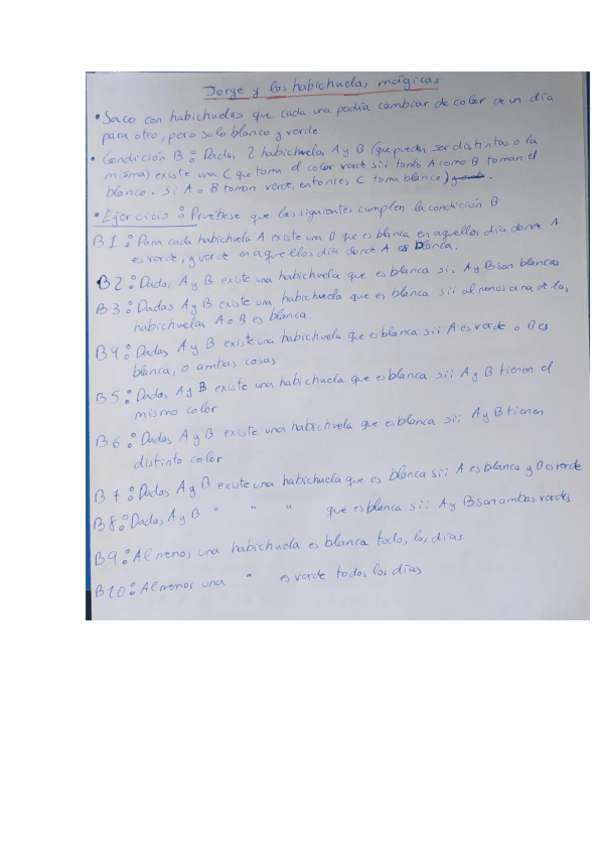 Jorge y las habichuelas mágicas
• Saco con habichuelas que cada una podía cambiar de color de un día
para otro, pero solo blanco y verde
• Condición B: Dadas 2 habichuelas A y B (que pueden ser distintas o la
misma) existe una C que toma el color verde sii tanto A como B toman el
blanco. Si A o B toman verde, entonces C toma blanco)
• Ejercicio: Pruébese que las siguientes cumplen la condición B
B1: Para cada habichuela A existe una B que es blanca en aquellos día donde A
es verde, y verde en aquellos día donde A es blanca.
B2: Dadas A y B existe una habichuela que es blanca sii A y B son blancas
B3: Dadas A y B existe una habichuela que es blanca sii al menos una de las
habichuelas A o B es blanca.
B4: Dadas A y B existe una habichuela que es blanca sii A es verde o B es
blanca, o ambas cosas
B5: Dadas A y B existe una habichuela que es blanca sii A y B tienen el
mismo color
B6: Dadas A y B existe una habichuela que es blanca sii A y B tienen
distinto color
B7: Dadas A y B existe una habichuela que es blanca sii A es blanca y B es verde
B8: Dadas A y B " " " que es blanca sii A y B son ambas verdes
B9: Al menos una habichuela es blanca todos los días
B10: Al menos una " es verde todos los días